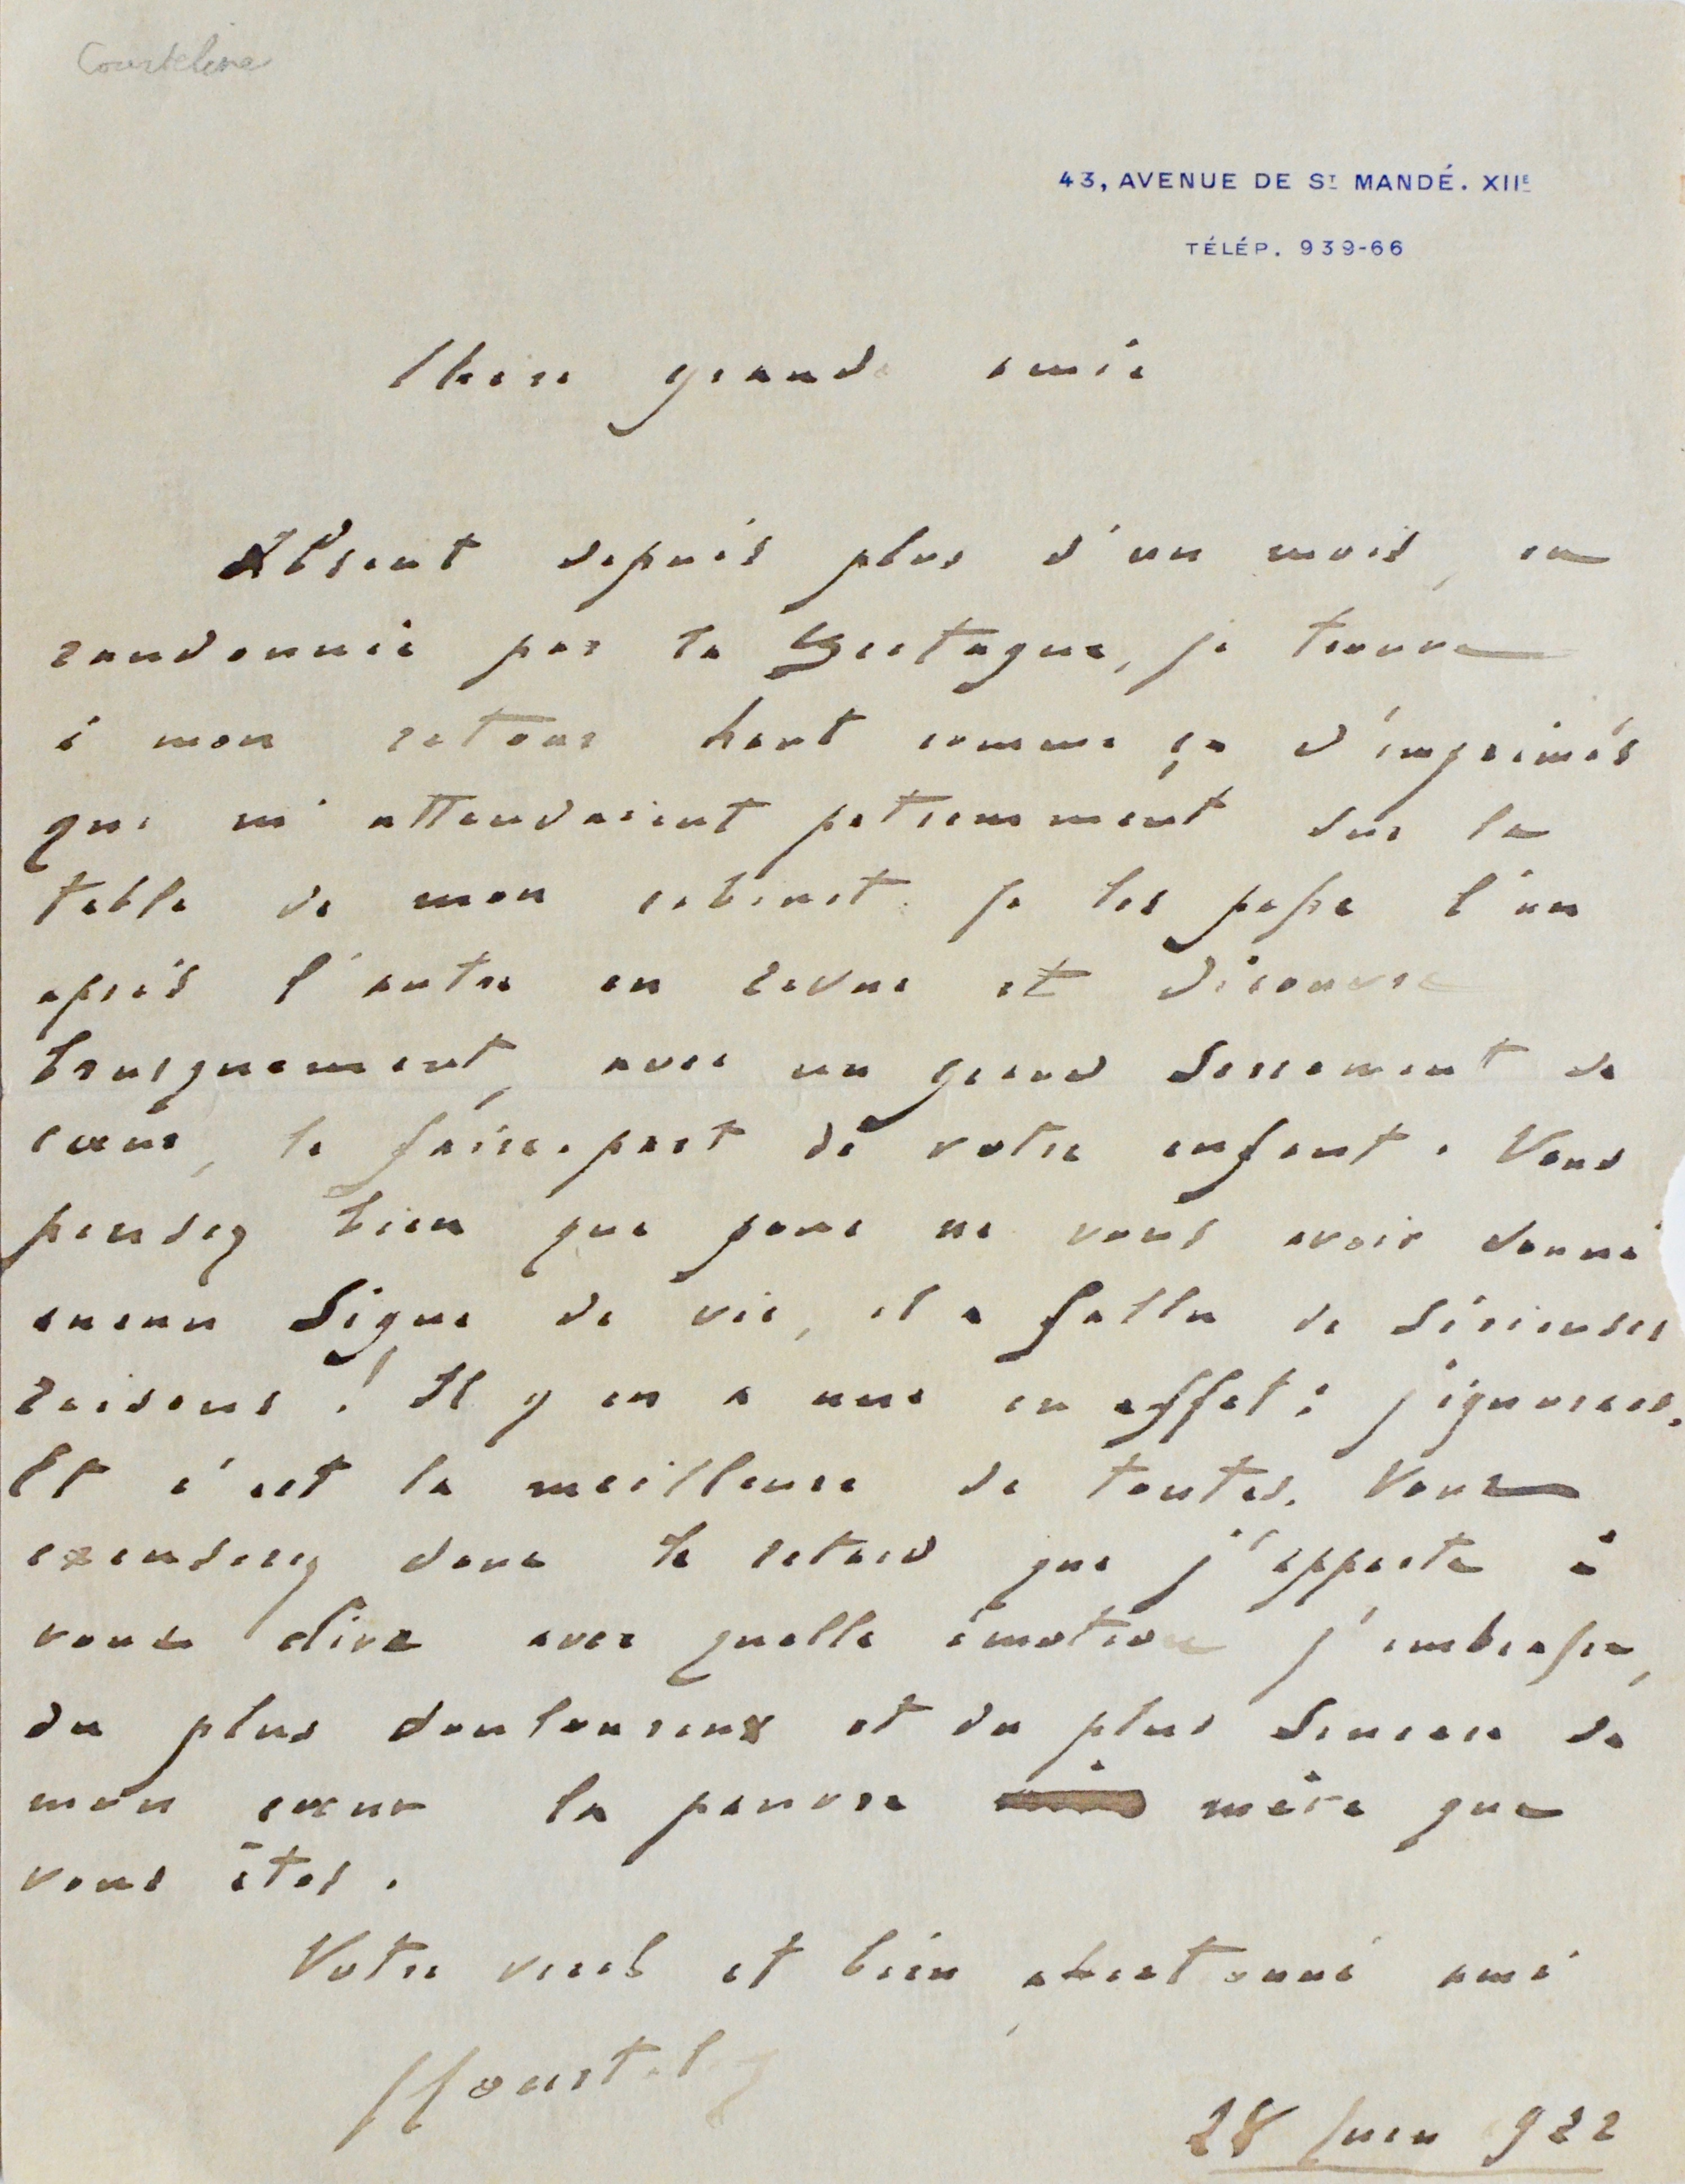 Courteline
43, AVENUE DE ST MANDÉ. XIIE
TÉLÉP. 939-66
Chère grande amie
Absent depuis plus d'un mois, en
randonnée par la Bretagne, je trouve
à mon retour haut comme ça d'imprimés
qui m'attendaient patiemment sur la
table de mon cabinet. Je les passe l'un
après l'autre en revue et découvre
brusquement, avec un grand serrement de
cœur, le faire-part de votre enfant. Vous
pensez bien que pour ne vous avoir donné
aucun signe de vie, il a fallu de sérieuses
raisons ! Il y en a une en effet : j'ignorais.
Et c'est la meilleure de toutes. Vous
excuserez donc le retard que j'apporte à
vous dire avec quelle émotion j'embrasse,
du plus douloureux et du plus sincère de
mon cœur la pauvre mère que
vous êtes.
Votre vieil et bien affectionné ami
GCourteline
28 Juin 922